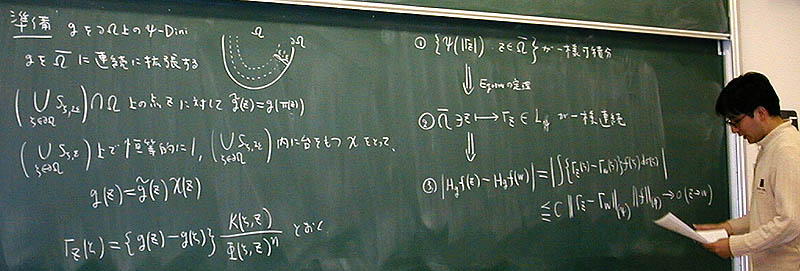 準備 gを∂Ω上のΨ-Dini
gを Ω̄ に連続に拡張する
Ω
∂Ω
(⋃_{ζ∈∂Ω} S_{ζ,2ε}) ∩ Ω 上の点 z に対して g̃(z) = g(π(z))
(⋃_{ζ∈∂Ω} S_{ζ,ε}) 上で恒等的に1, (⋃_{ζ∈∂Ω} S_{ζ,2ε}) 内に台をもつ χ をとって、
g(z) = g̃(z) χ(z)
Γ_z(ζ) = {g(z) - g(ζ)} K(ζ,z) / Φ(ζ,z)^n とおく
① {Ψ(|Γ_z|) : z ∈ Ω̄} が一様可積分
⇓ Egorovの定理
② Ω̄ ∋ z ⟼ Γ_z ∈ L_Ψ が一様連続
⇓
③ |H_g f(z) - H_g f(w)| = |∫{Γ_z(ζ) - Γ_w(ζ)} f(ζ) dσ(ζ)|
≦ C ‖Γ_z - Γ_w‖_(Ψ) ‖f‖_(Φ) → 0 (z→w)